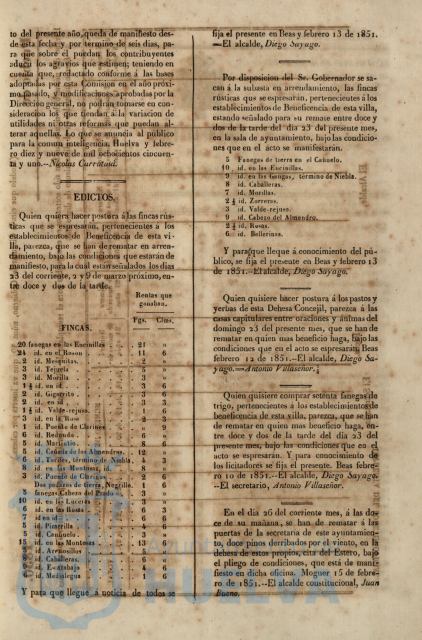 to del presente año, queda de manifiesto des-
de esta fecha y por termino de seis dias, pa-
ra que sobre el puedan los contribuyentes
aducir los agravios que estimen; teniendo en
cuenta que, redactado conforme á las bases
adoptadas por esta Comision en el año próxi-
mo pasado, y modificaciones aprobadas por la
Direccion general, no podrán tomarse en con-
sideracion los que tiendan á la variacion de
utilidades ni otras reformas que puedan al-
terar aquellas. Lo que se anuncia al público
para la comun inteligencia. Huelva y febre-
ro diez y nueve de mil ochocientos cincuen-
ta y uno.--Nicolas Carratalá.
EDICTOS.
Quien quiera hacer postura á las fincas rús-
ticas que se espresarán, pertenecientes á los
establecimientos de Beneficencia de esta vi-
lla, parezca, que se han de rematar en arren-
damiento, bajo las condiciones que estarán de
manifiesto, para la cual están señalados los dias
23 del corriente, 2 y 9 de marzo próximo, en-
tre doce y dos de la tarde.
Rentas que
ganaban.
FINCAS. Fgs. Clms.
20 fanegas en las Encinillas 21 »
24 id. en el Rason 11 6
2 id. Mesquitas 2 »
3 id. Tejuela 5 »
3 id. Morilla 3 »
1 1/2 id. en id. 3 6
2 id. Gigorrito 3 6
2 id. en id. 3 3
1 1/2 id. Valde-rejuso 1 6
3 id. en la Rosa 2 3
1 id. Puente de Clarines » 9
6 id. Redondo 6 6
5 id. Marinito 8 6
5 id. Cañada de los Almendros 12 »
6 id. Tardes, término de Niebla 4 3
8 id. en las Montosas, id. 8 »
3 id. Puente de Clarines 2 6
Dos pedazos de tierra, Negrillo 1 6
5 fanegas Cabeza del Prado 3 »
10 id. en las Luceras 6 3
6 id. en las Rosas 6 3
7 id. en id. 6 6
5 id. Picarrilla 4 6
5 id. Cañuelo 3 »
15 id. en las Montosas 13 6
2 id. Arenosillos 5 »
8 id. Caballeras 6 »
9 id. Escatabajo 4 6
2 id. Medialegua 1 6
Y para que llegue á noticia de todos se
fija el presente en Beas y febrero 13 de 1851.
—El alcalde, Diego Sayago.
Por disposicion del Sr. Gobernador se sa-
can á la subasta en arrendamiento, las fincas
rústicas que se espresarán, pertenecientes á los
establecimientos de Beneficencia de esta villa,
estando señalado para su remate entre doce y
dos de la tarde del dia 23 del presente mes,
en la sala de ayuntamiento, bajo las condicio-
nes que en el acto se manifestarán.
5 Fanegas de tierra en el Cañuelo.
10 id. en las Encinillas.
9 id. en las Gangas, término de Niebla.
8 id. Caballeras.
7 id. Morillas.
2 1/2 id. Zorreras.
3 id. Valde-rejuso.
9 id. Cabezo del Almendro.
2 1/2 id. Rosas.
6 id. Bellerinas.
Y para que llegue á conocimiento del pú-
blico, se fija el presente en Beas y febrero 13
de 1851.--El alcalde, Diego Sayago.
Quien quisiere hacer postura á los pastos y
yerbas de esta Dehesa Concejil, parezca á las
casas capitulares entre oraciones y ánimas del
domingo 23 del presente mes, que se han de
rematar en quien mas beneficio haga, bajo las
condiciones que en el acto se espresaran. Beas
febrero 12 de 1851.--El alcalde, Diego Sa-
yago.--Antonio Villaseñor.
Quien quisiere comprar setenta fanegas de
trigo, pertenecientes á los establecimientos de
beneficencia de esta villa, parezca, que se han
de rematar en quien mas beneficio haga, en-
tre doce y dos de la tarde del dia 23 del
presente mes, bajo las condiciones que en el
acto se espresarán. Y para conocimiento de
los licitadores se fija el presente. Beas febre-
ro 10 de 1851.--El alcalde, Diego Sayago.
--El secretario, Antonio Villaseñor.
En el dia 26 del corriente mes, á las do-
ce de su mañana, se han de rematar á las
puertas de la secretaria de este ayuntamien-
to, doce pinos derribados por el viento, en la
dehesa de estos propios, cita del Estero, bajo
el pliego de condiciones, que está de mani-
fiesto en dicha oficina. Moguer 15 de febre-
ro de 1851.--El alcalde constitucional, Juan
Bueno.
HUELVA